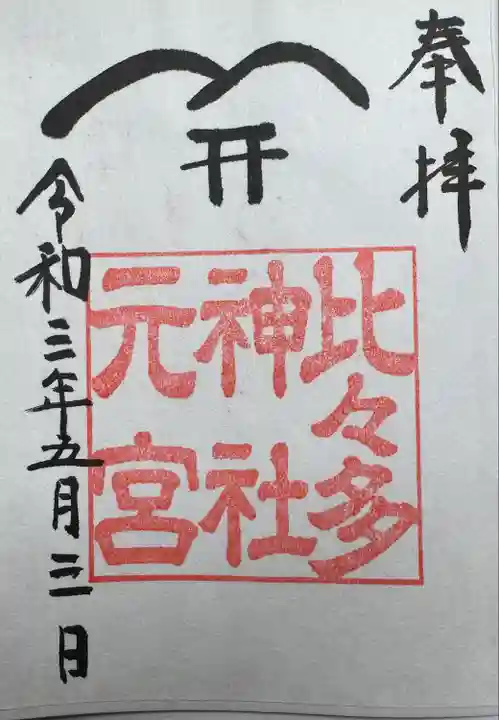 奉拝
比々多
神社
元宮
令和三年五月三日